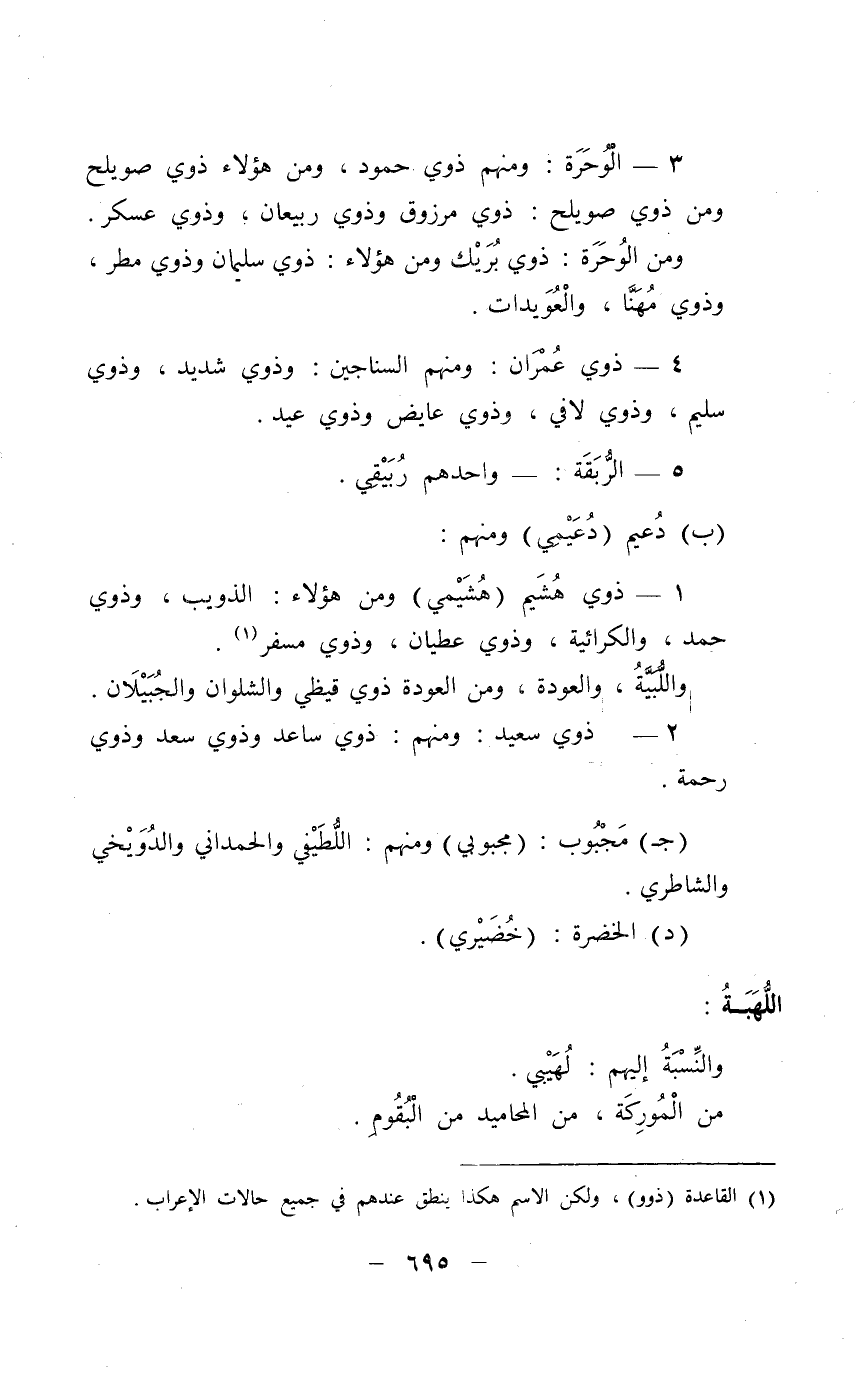 ٣ — الْوُحَرَة : ومنهم ذوي حمود ، ومن هؤلاء ذوي صويلح
ومن ذوي صويلح : ذوي مرزوق وذوي ربيعان ، وذوي عسكر .
ومن الوُحَرَة : ذوي بُرَيْك ومن هؤلاء : ذوي سليمان وذوي مطر ،
وذوي مُهَنَّا ، والْعُوَيدات .
٤ — ذوي عُمْرَان : ومنهم السناجين : وذوي شديد ، وذوي
سليم ، وذوي لافي ، وذوي عايض وذوي عيد .
٥ — الرُّبَقَة : — واحدهم رُبَيْقِي .
(ب) دُعيم (دُعَيْمِي) ومنهم :
١ — ذوي هُشَيم (هُشَيْمي) ومن هؤلاء : الذويب ، وذوي
حمد ، والكراثية ، وذوي عطيان ، وذوي مسفر(١) .
واللُّبَيَّةُ ، والعودة ، ومن العودة ذوي قيظي والشلوان والجُبَيْلَان .
٢ — ذوي سعيد : ومنهم : ذوي ساعد وذوي سعد وذوي
رحمة .
(جـ) مَجْبُوب : (مجبوبي) ومنهم : اللُّطَيْفي والحمداني والدُوَيْخي
والشاطري .
(د) الخضرة : (خُضَيْري) .
اللُّهَبَــةُ :
والنِّسْبَةُ إليهم : لُهَيْبِي .
من الْمُورِكَة ، من المحاميد من الْبُقُومِ .
(١) القاعدة (ذوو) ، ولكن الاسم هكذا ينطق عندهم في جميع حالات الإعراب .
— ٦٩٥ —